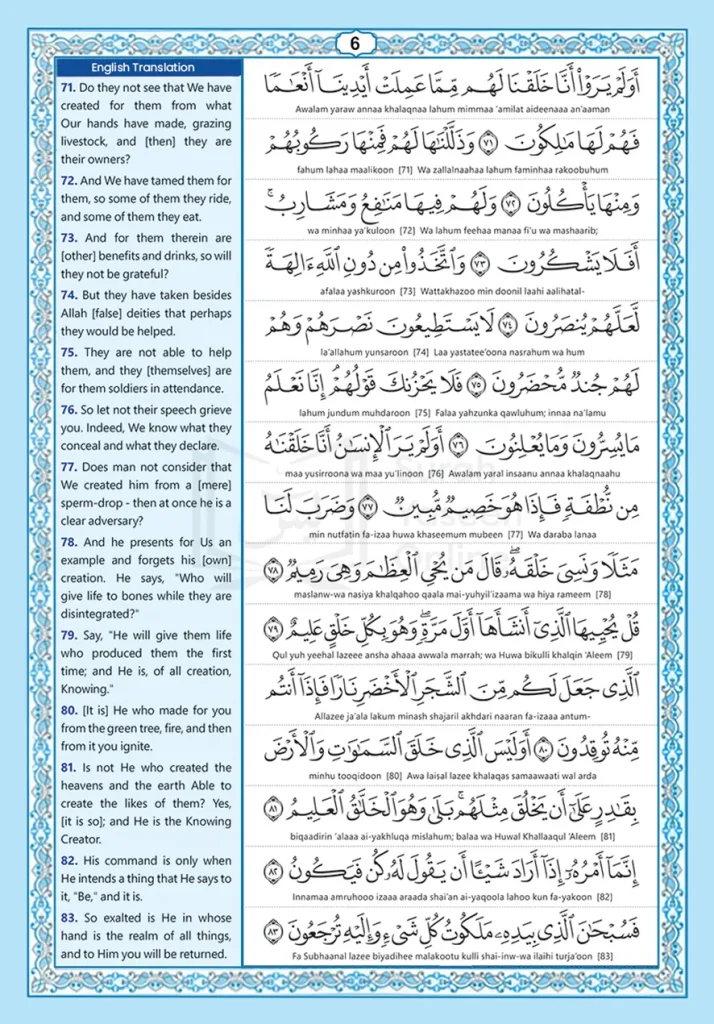 6
English Translation
71. Do they not see that We have
created for them from what
Our hands have made, grazing
livestock, and [then] they are
their owners?
72. And We have tamed them for
them, so some of them they ride,
and some of them they eat.
73. And for them therein are
[other] benefits and drinks, so will
they not be grateful?
74. But they have taken besides
Allah [false] deities that perhaps
they would be helped.
75. They are not able to help
them, and they [themselves] are
for them soldiers in attendance.
76. So let not their speech grieve
you. Indeed, We know what they
conceal and what they declare.
77. Does man not consider that
We created him from a [mere]
sperm-drop - then at once he is a
clear adversary?
78. And he presents for Us an
example and forgets his [own]
creation. He says, "Who will
give life to bones while they are
disintegrated?"
79. Say, "He will give them life
who produced them the first
time; and He is, of all creation,
Knowing."
80. [It is] He who made for you
from the green tree, fire, and then
from it you ignite.
81. Is not He who created the
heavens and the earth Able to
create the likes of them? Yes,
[it is so]; and He is the Knowing
Creator.
82. His command is only when
He intends a thing that He says to
it, "Be," and it is.
83. So exalted is He in whose
hand is the realm of all things,
and to Him you will be returned.
أَوَلَمْ يَرَوْا۟ أَنَّا خَلَقْنَا لَهُم مِّمَّا عَمِلَتْ أَيْدِينَآ أَنْعَٰمًا
Awalam yaraw annaa khalaqnaa lahum mimmaa 'amilat aideenaaa an'aaman
فَهُمْ لَهَا مَٰلِكُونَ ٧١ وَذَلَّلْنَٰهَا لَهُمْ فَمِنْهَا رَكُوبُهُمْ
fahum lahaa maalikoon [71] Wa zallalnaahaa lahum faminhaa rakoobuhum
وَمِنْهَا يَأْكُلُونَ ٧٢ وَلَهُمْ فِيهَا مَنَٰفِعُ وَمَشَارِبُ ۚ
wa minhaa ya'kuloon [72] Wa lahum feehaa manaa fi'u wa mashaarib;
أَفَلَا يَشْكُرُونَ ٧٣ وَٱتَّخَذُوا۟ مِن دُونِ ٱللَّهِ ءَالِهَةً
afalaa yashkuroon [73] Wattakhazoo min doonil laahi aalihatal-
لَّعَلَّهُمْ يُنصَرُونَ ٧٤ لَا يَسْتَطِيعُونَ نَصْرَهُمْ وَهُمْ
la'allahum yunsaroon [74] Laa yastatee'oona nasrahum wa hum
لَهُمْ جُندٌ مُّحْضَرُونَ ٧٥ فَلَا يَحْزُنكَ قَوْلُهُمْ ۘ إِنَّا نَعْلَمُ
lahum jundum muhdaroon [75] Falaa yahzunka qawluhum; innaa na'lamu
مَا يُسِرُّونَ وَمَا يُعْلِنُونَ ٧٦ أَوَلَمْ يَرَ ٱلْإِنسَٰنُ أَنَّا خَلَقْنَٰهُ
maa yusirroona wa maa yu'linoon [76] Awalam yaral insaanu annaa khalaqnaahu
مِن نُّطْفَةٍ فَإِذَا هُوَ خَصِيمٌ مُّبِينٌ ٧٧ وَضَرَبَ لَنَا
min nutfatin fa-izaa huwa khaseemum mubeen [77] Wa daraba lanaa
مَثَلًا وَنَسِىَ خَلْقَهُۥ ۖ قَالَ مَن يُحْىِ ٱلْعِظَٰمَ وَهِىَ رَمِيمٌ ٧٨
maslanw-wa nasiya khalqahoo qaala mai-yuhyil'izaama wa hiya rameem [78]
قُلْ يُحْيِيهَا ٱلَّذِىٓ أَنشَأَهَآ أَوَّلَ مَرَّةٍ ۖ وَهُوَ بِكُلِّ خَلْقٍ عَلِيمٌ ٧٩
Qul yuh yeehal lazeee ansha ahaaa awwala marrah; wa Huwa bikulli khalqin 'Aleem [79]
ٱلَّذِى جَعَلَ لَكُم مِّنَ ٱلشَّجَرِ ٱلْأَخْضَرِ نَارًا فَإِذَآ أَنتُم
Allazee ja'ala lakum minash shajaril akhdari naaran fa-izaaa antum-
مِّنْهُ تُوقِدُونَ ٨٠ أَوَلَيْسَ ٱلَّذِى خَلَقَ ٱلسَّمَٰوَٰتِ وَٱلْأَرْضَ
minhu tooqidoon [80] Awa laisal lazee khalaqas samaawaati wal arda
بِقَٰدِرٍ عَلَىٰٓ أَن يَخْلُقَ مِثْلَهُم ۚ بَلَىٰ وَهُوَ ٱلْخَلَّٰقُ ٱلْعَلِيمُ ٨١
biqaadirin 'alaaa ai-yakhluqa mislahum; balaa wa Huwal Khallaaqul 'Aleem [81]
إِنَّمَآ أَمْرُهُۥٓ إِذَآ أَرَادَ شَيْـًٔا أَن يَقُولَ لَهُۥ كُن فَيَكُونُ ٨٢
Innamaa amruhooo izaaa araada shai'an ai-yaqoola lahoo kun fa-yakoon [82]
فَسُبْحَٰنَ ٱلَّذِى بِيَدِهِۦ مَلَكُوتُ كُلِّ شَىْءٍ وَإِلَيْهِ تُرْجَعُونَ ٨٣
Fa Subhaanal lazee biyadihee malakootu kulli shai-inw-wa ilaihi turja'oon [83]
Surah
Yaseen
Online